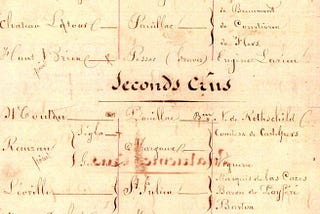 de Beaumont
Château Latour Pauillac de Courtivron
de Flers
Haut Brion Pessac (Graves) Eugène Larrieu
Seconds Crûs
Mouton Pauillac Bon N. de Rothschild
Comtesse de Castelpers
Rauzan Margaux
Viguerie
Marquis de las Cases
Léoville St Julien Baron de Poyféré
Barton